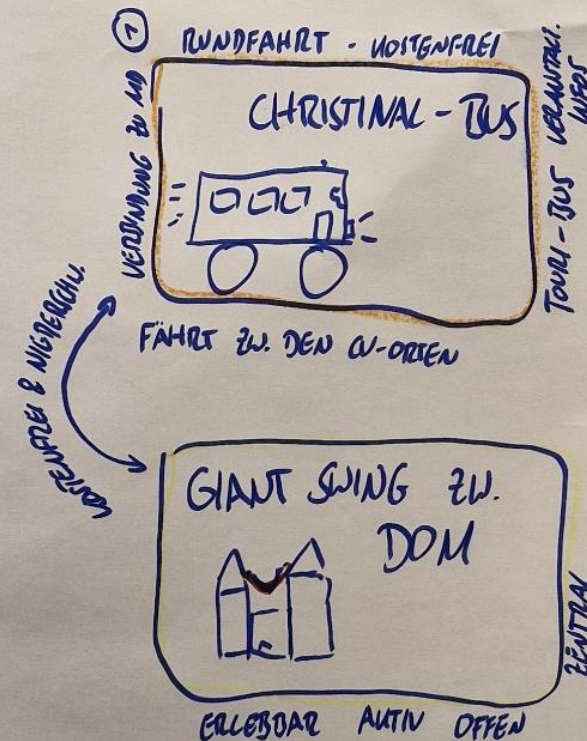 1
RUNDFAHRT - KOSTENFREI
VERBINDUNG ZU MD
CHRISTINAL - BUS
TOURI - BUS VERANSTALT.
INFOS
FÄHRT ZW. DEN CV-ORTEN
KOSTENFREI & NIGDERSCHW.
GIANT SWING ZW.
DOM
ZENTRAL
ERLEBBAR AKTIV OFFEN